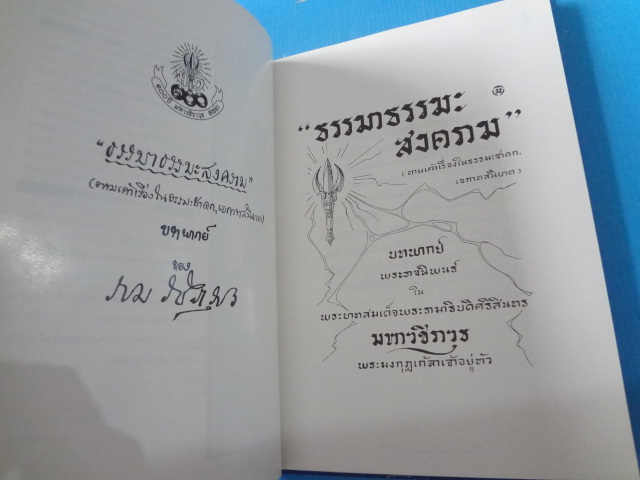 ๑๐๐ ปี มหาวชิราวุธ
"ธรรมาธรรมะสงคราม"
(ตามเค้าเรื่องในธรรมะชาดก, เอกาทสนิบาต)
บทพากย์
ของ
ราม วชิราวุธ
"ธรรมาธรรมะ
สงคราม"
(ตามเค้าเรื่องในธรรมะชาดก,
เอกาทสนิบาต)
บทพากย์
พระราชนิพนธ์
ใน
พระบาทสมเด็จพระรามาธิบดีศรีสินทร
มหาวชิราวุธ
พระมงกุฎเกล้าเจ้าอยู่หัว